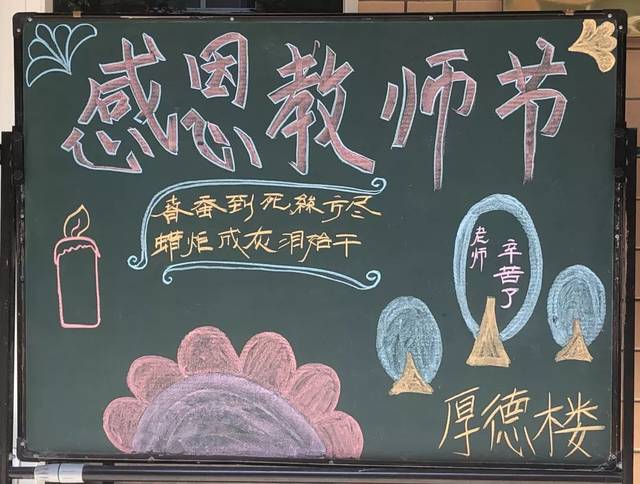 感恩教师节
春蚕到死絲方尽
蜡炬成灰泪始干
老师
辛苦了
厚德楼